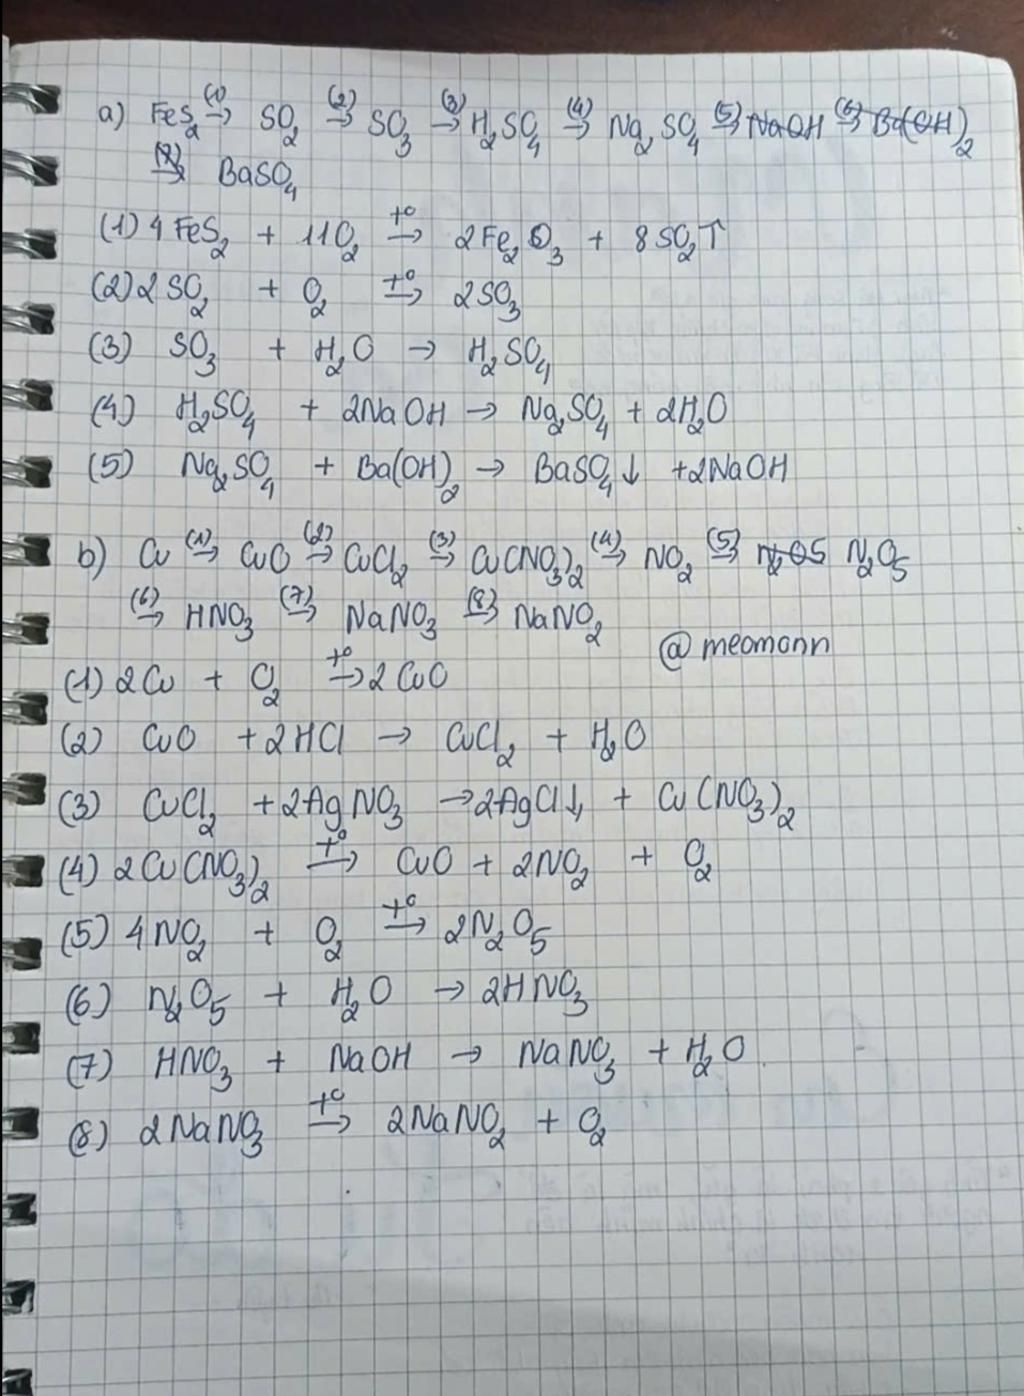 a) FeS₂ (1)→ SO₂ (2)→ SO₃ (3)→ H₂SO₄ (4)→ Na₂SO₄ (5)→ NaOH (6)→ Ba(OH)₂
(7)→ BaSO₄
(1) 4FeS₂ + 11O₂ t°→ 2Fe₂O₃ + 8SO₂↑
(2) 2SO₂ + O₂ t°→ 2SO₃
(3) SO₃ + H₂O → H₂SO₄
(4) H₂SO₄ + 2NaOH → Na₂SO₄ + 2H₂O
(5) Na₂SO₄ + Ba(OH)₂ → BaSO₄↓ + 2NaOH
b) Cu (1)→ CuO (2)→ CuCl₂ (3)→ Cu(NO₃)₂ (4)→ NO₂ (5)→ N₂O5 N₂O₅
(6)→ HNO₃ (7)→ NaNO₃ (8)→ NaNO₂
@meomonn
(1) 2Cu + O₂ t°→ 2CuO
(2) CuO + 2HCl → CuCl₂ + H₂O
(3) CuCl₂ + 2AgNO₃ → 2AgCl↓ + Cu(NO₃)₂
(4) 2Cu(NO₃)₂ t°→ CuO + 2NO₂ + O₂
(5) 4NO₂ + O₂ t°→ 2N₂O₅
(6) N₂O₅ + H₂O → 2HNO₃
(7) HNO₃ + NaOH → NaNO₃ + H₂O
(8) 2NaNO₃ t°→ 2NaNO₂ + O₂